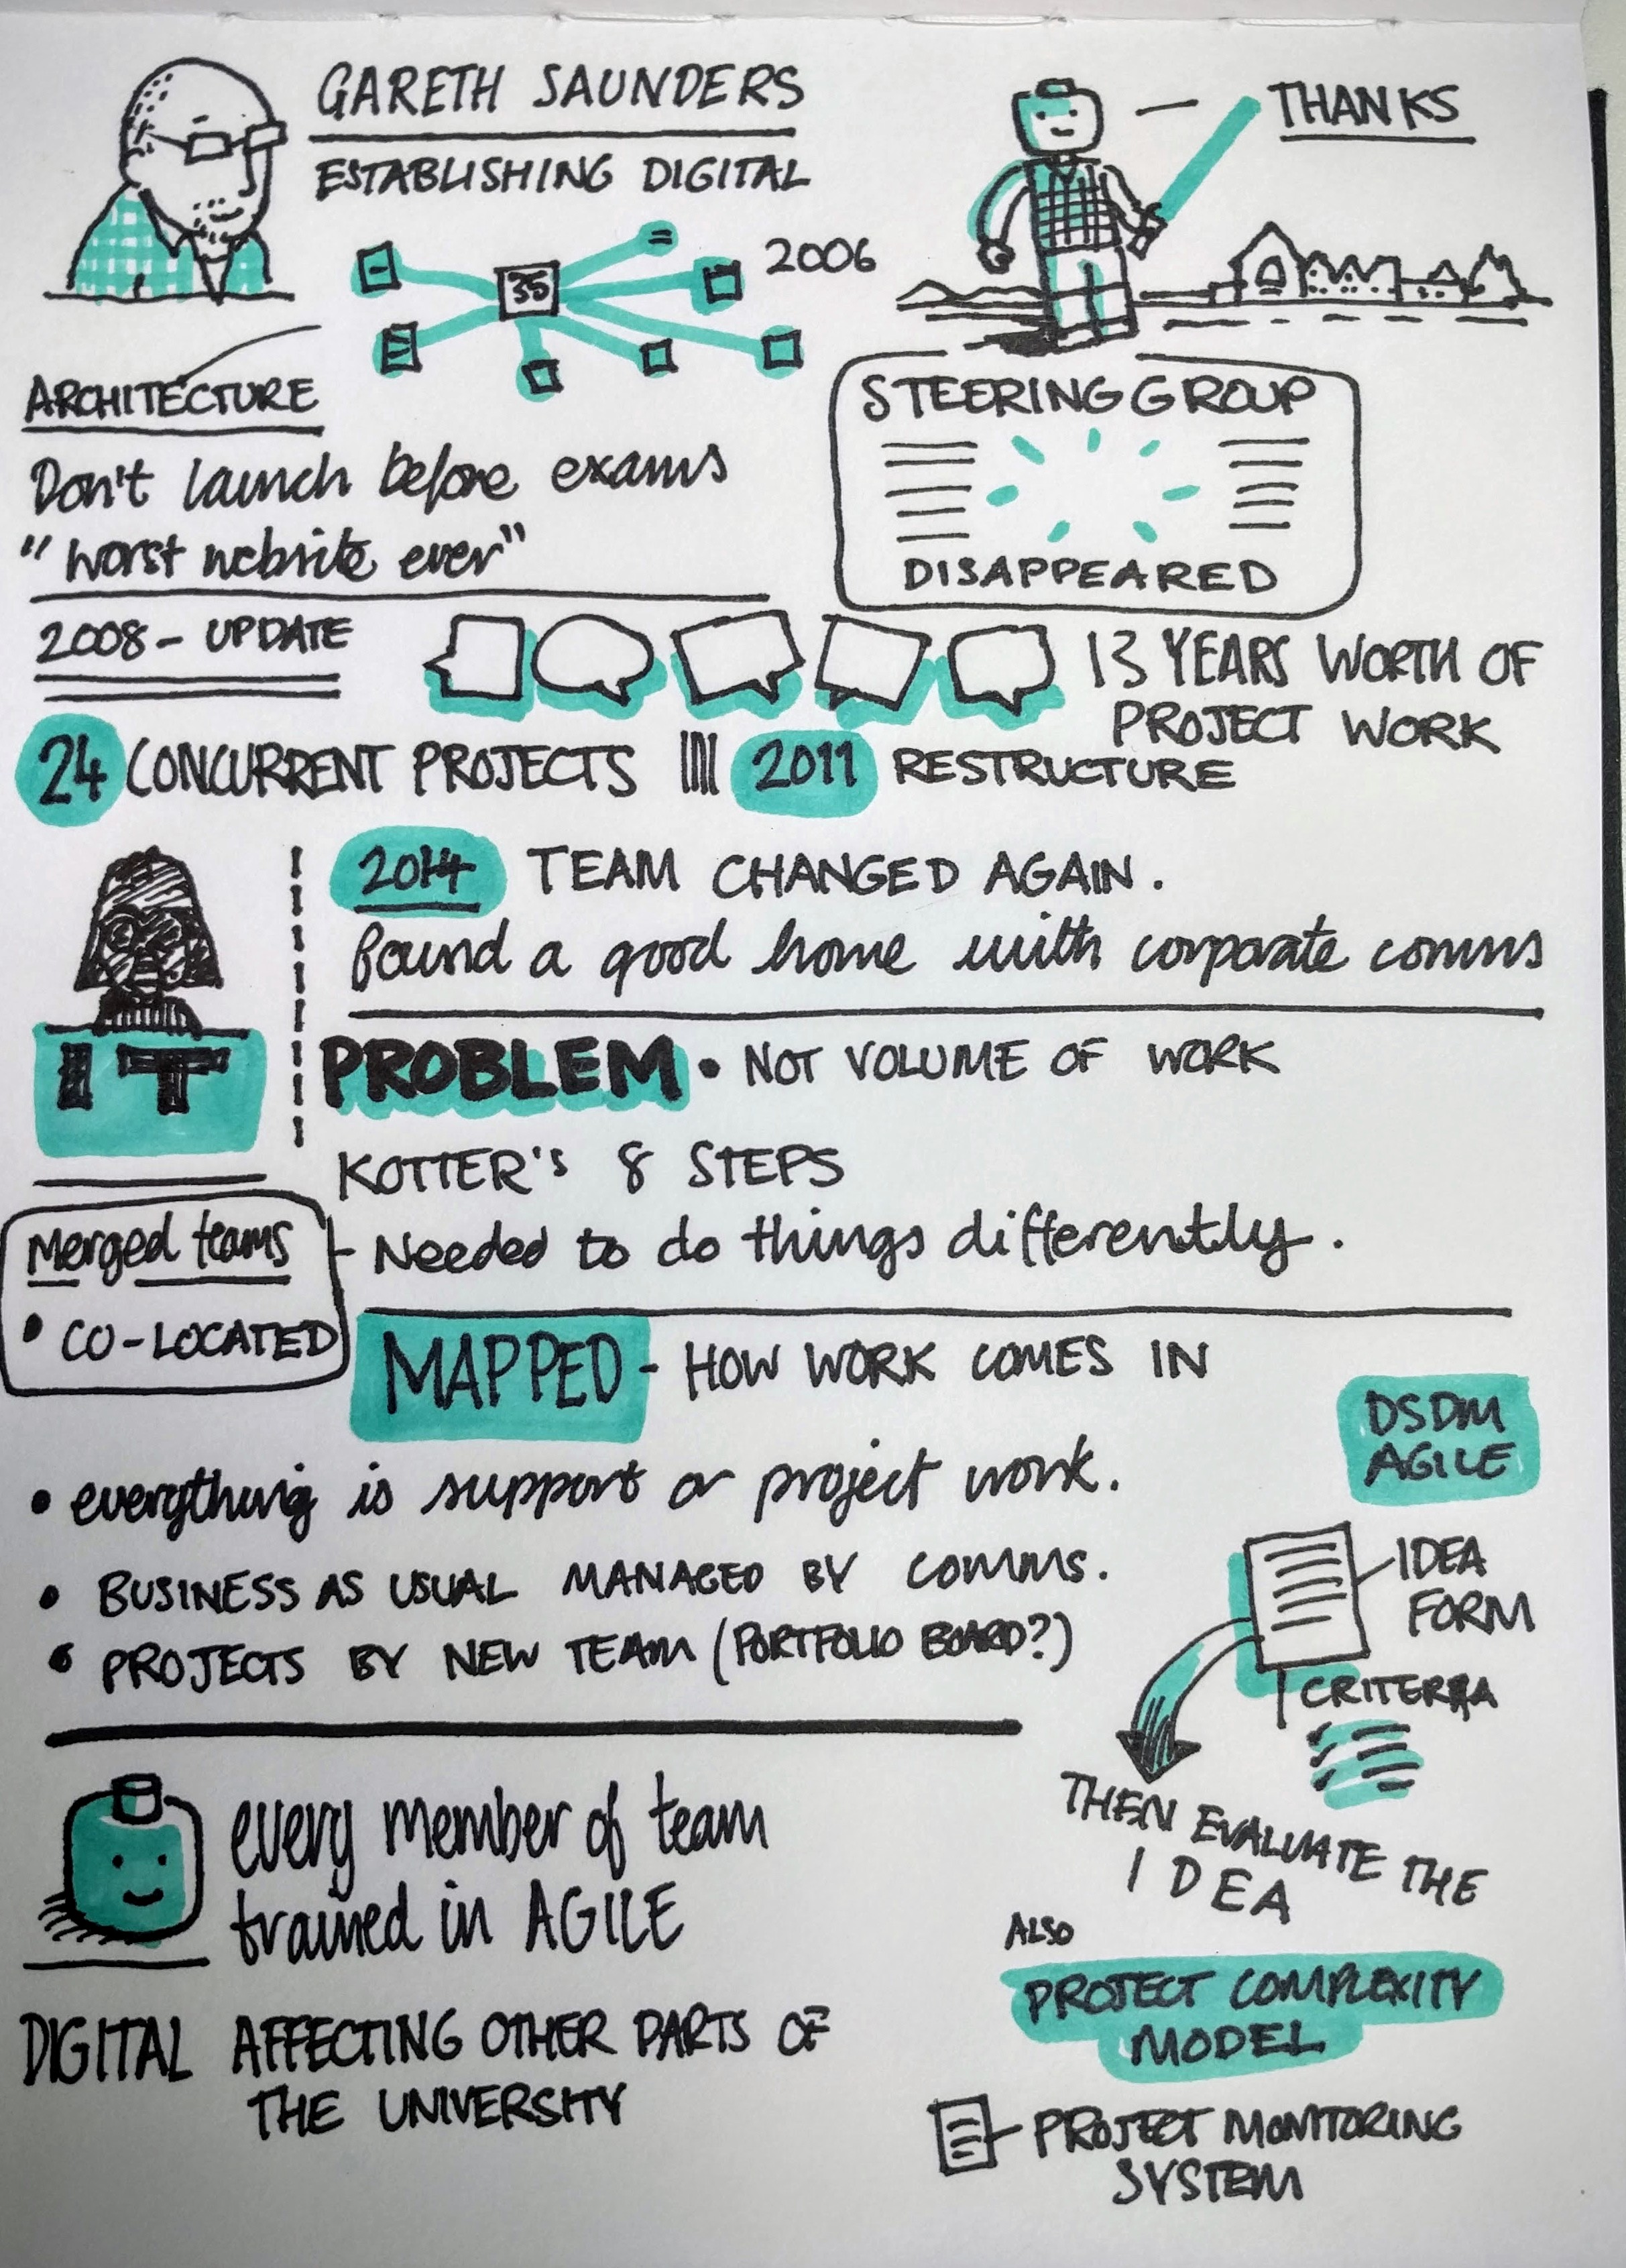 GARETH SAUNDERS
ESTABLISHING DIGITAL
THANKS
35
2006
ARCHITECTURE
Don't launch before exams
"worst website ever"
STEERING GROUP
DISAPPEARED
2008 - UPDATE
13 YEARS WORTH OF
PROJECT WORK
24 CONCURRENT PROJECTS
2011 RESTRUCTURE
2014 TEAM CHANGED AGAIN.
found a good home with corporate comms
IT
PROBLEM • NOT VOLUME OF WORK
KOTTER'S 8 STEPS
- Needed to do things differently.
Merged teams
• CO-LOCATED
MAPPED - HOW WORK COMES IN
DSDM
AGILE
• everything is support or project work.
• BUSINESS AS USUAL MANAGED BY COMMS.
• PROJECTS BY NEW TEAM (PORTFOLIO BOARD?)
IDEA
FORM
CRITERIA
THEN EVALUATE THE
IDEA
every member of team
trained in AGILE
ALSO
PROJECT COMPLEXITY
MODEL
DIGITAL AFFECTING OTHER PARTS OF
THE UNIVERSITY
PROJECT MONITORING
SYSTEM